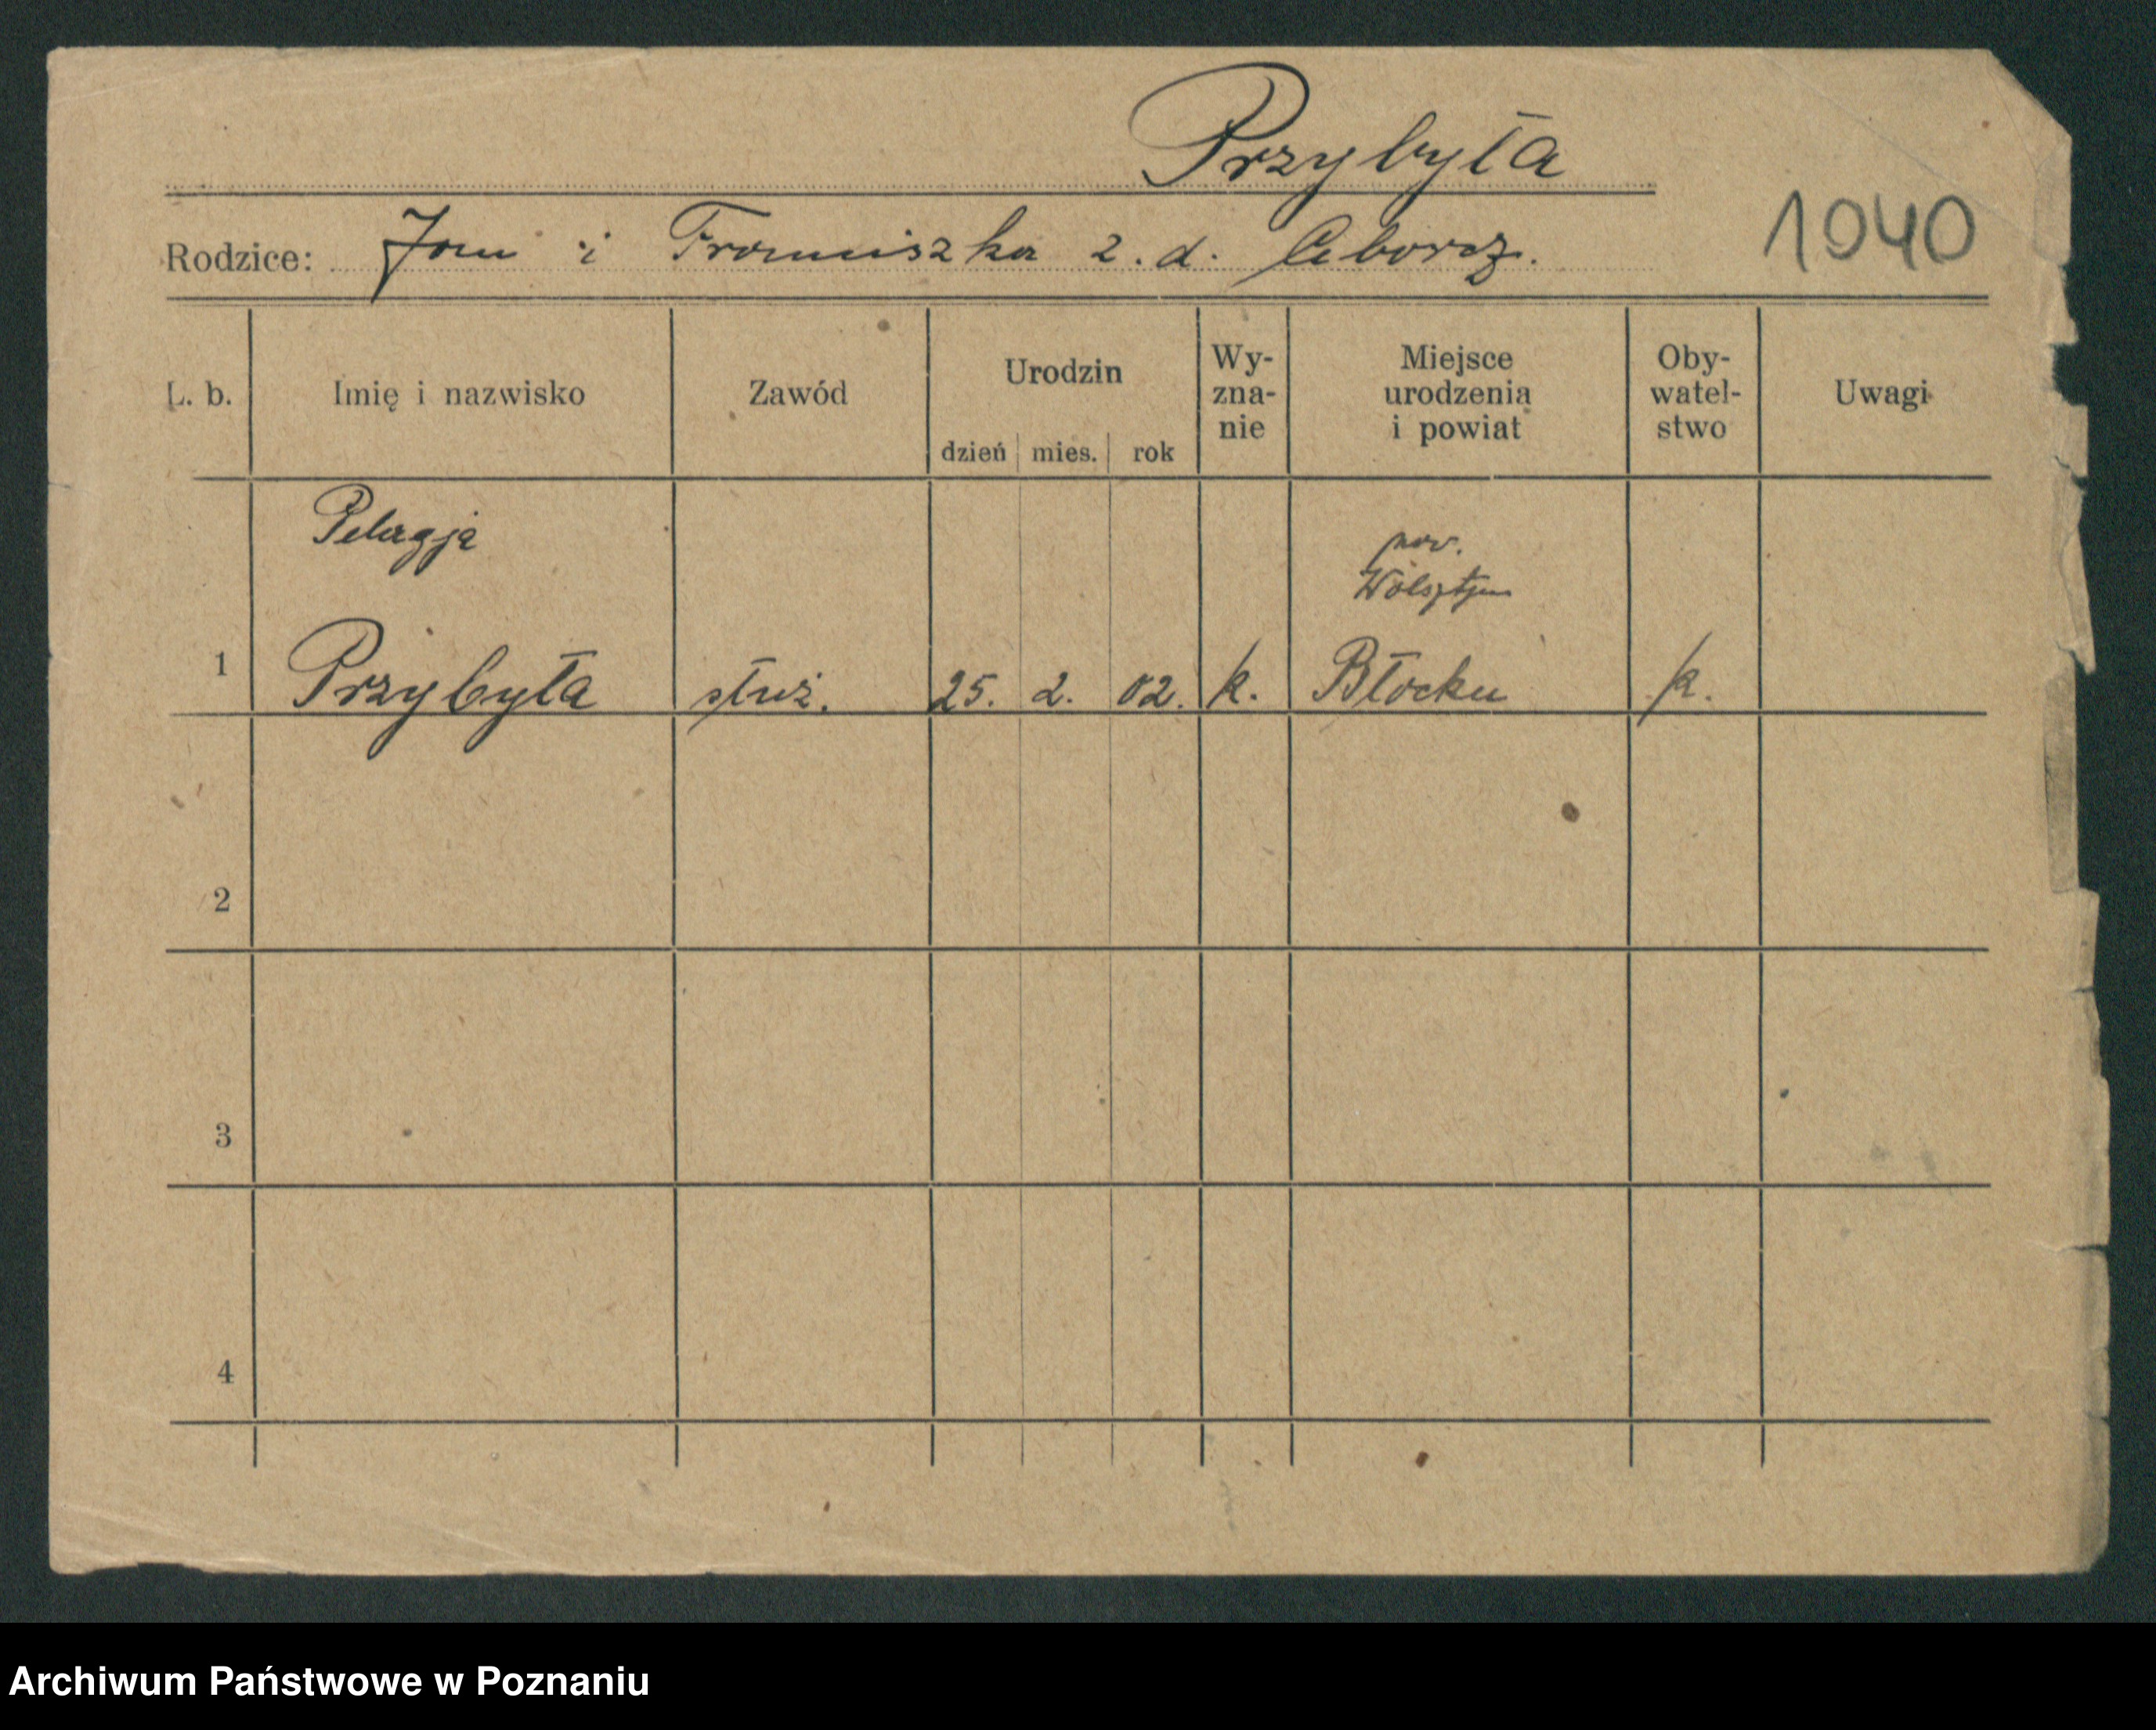 Przybyła
Rodzice: Jan i Franciszka z. d. Ciborz.
1040
L. b. Imię i nazwisko Zawód Urodzin dzień mies. rok Wy-zna-nie Miejsce urodzenia i powiat Oby-watel-stwo Uwagi
Pelagja
pow.
Wolsztyn
1 Przybyła służ. 25. 2. 02. k. Błocku
2
3
4
Archiwum Państwowe w Poznaniu